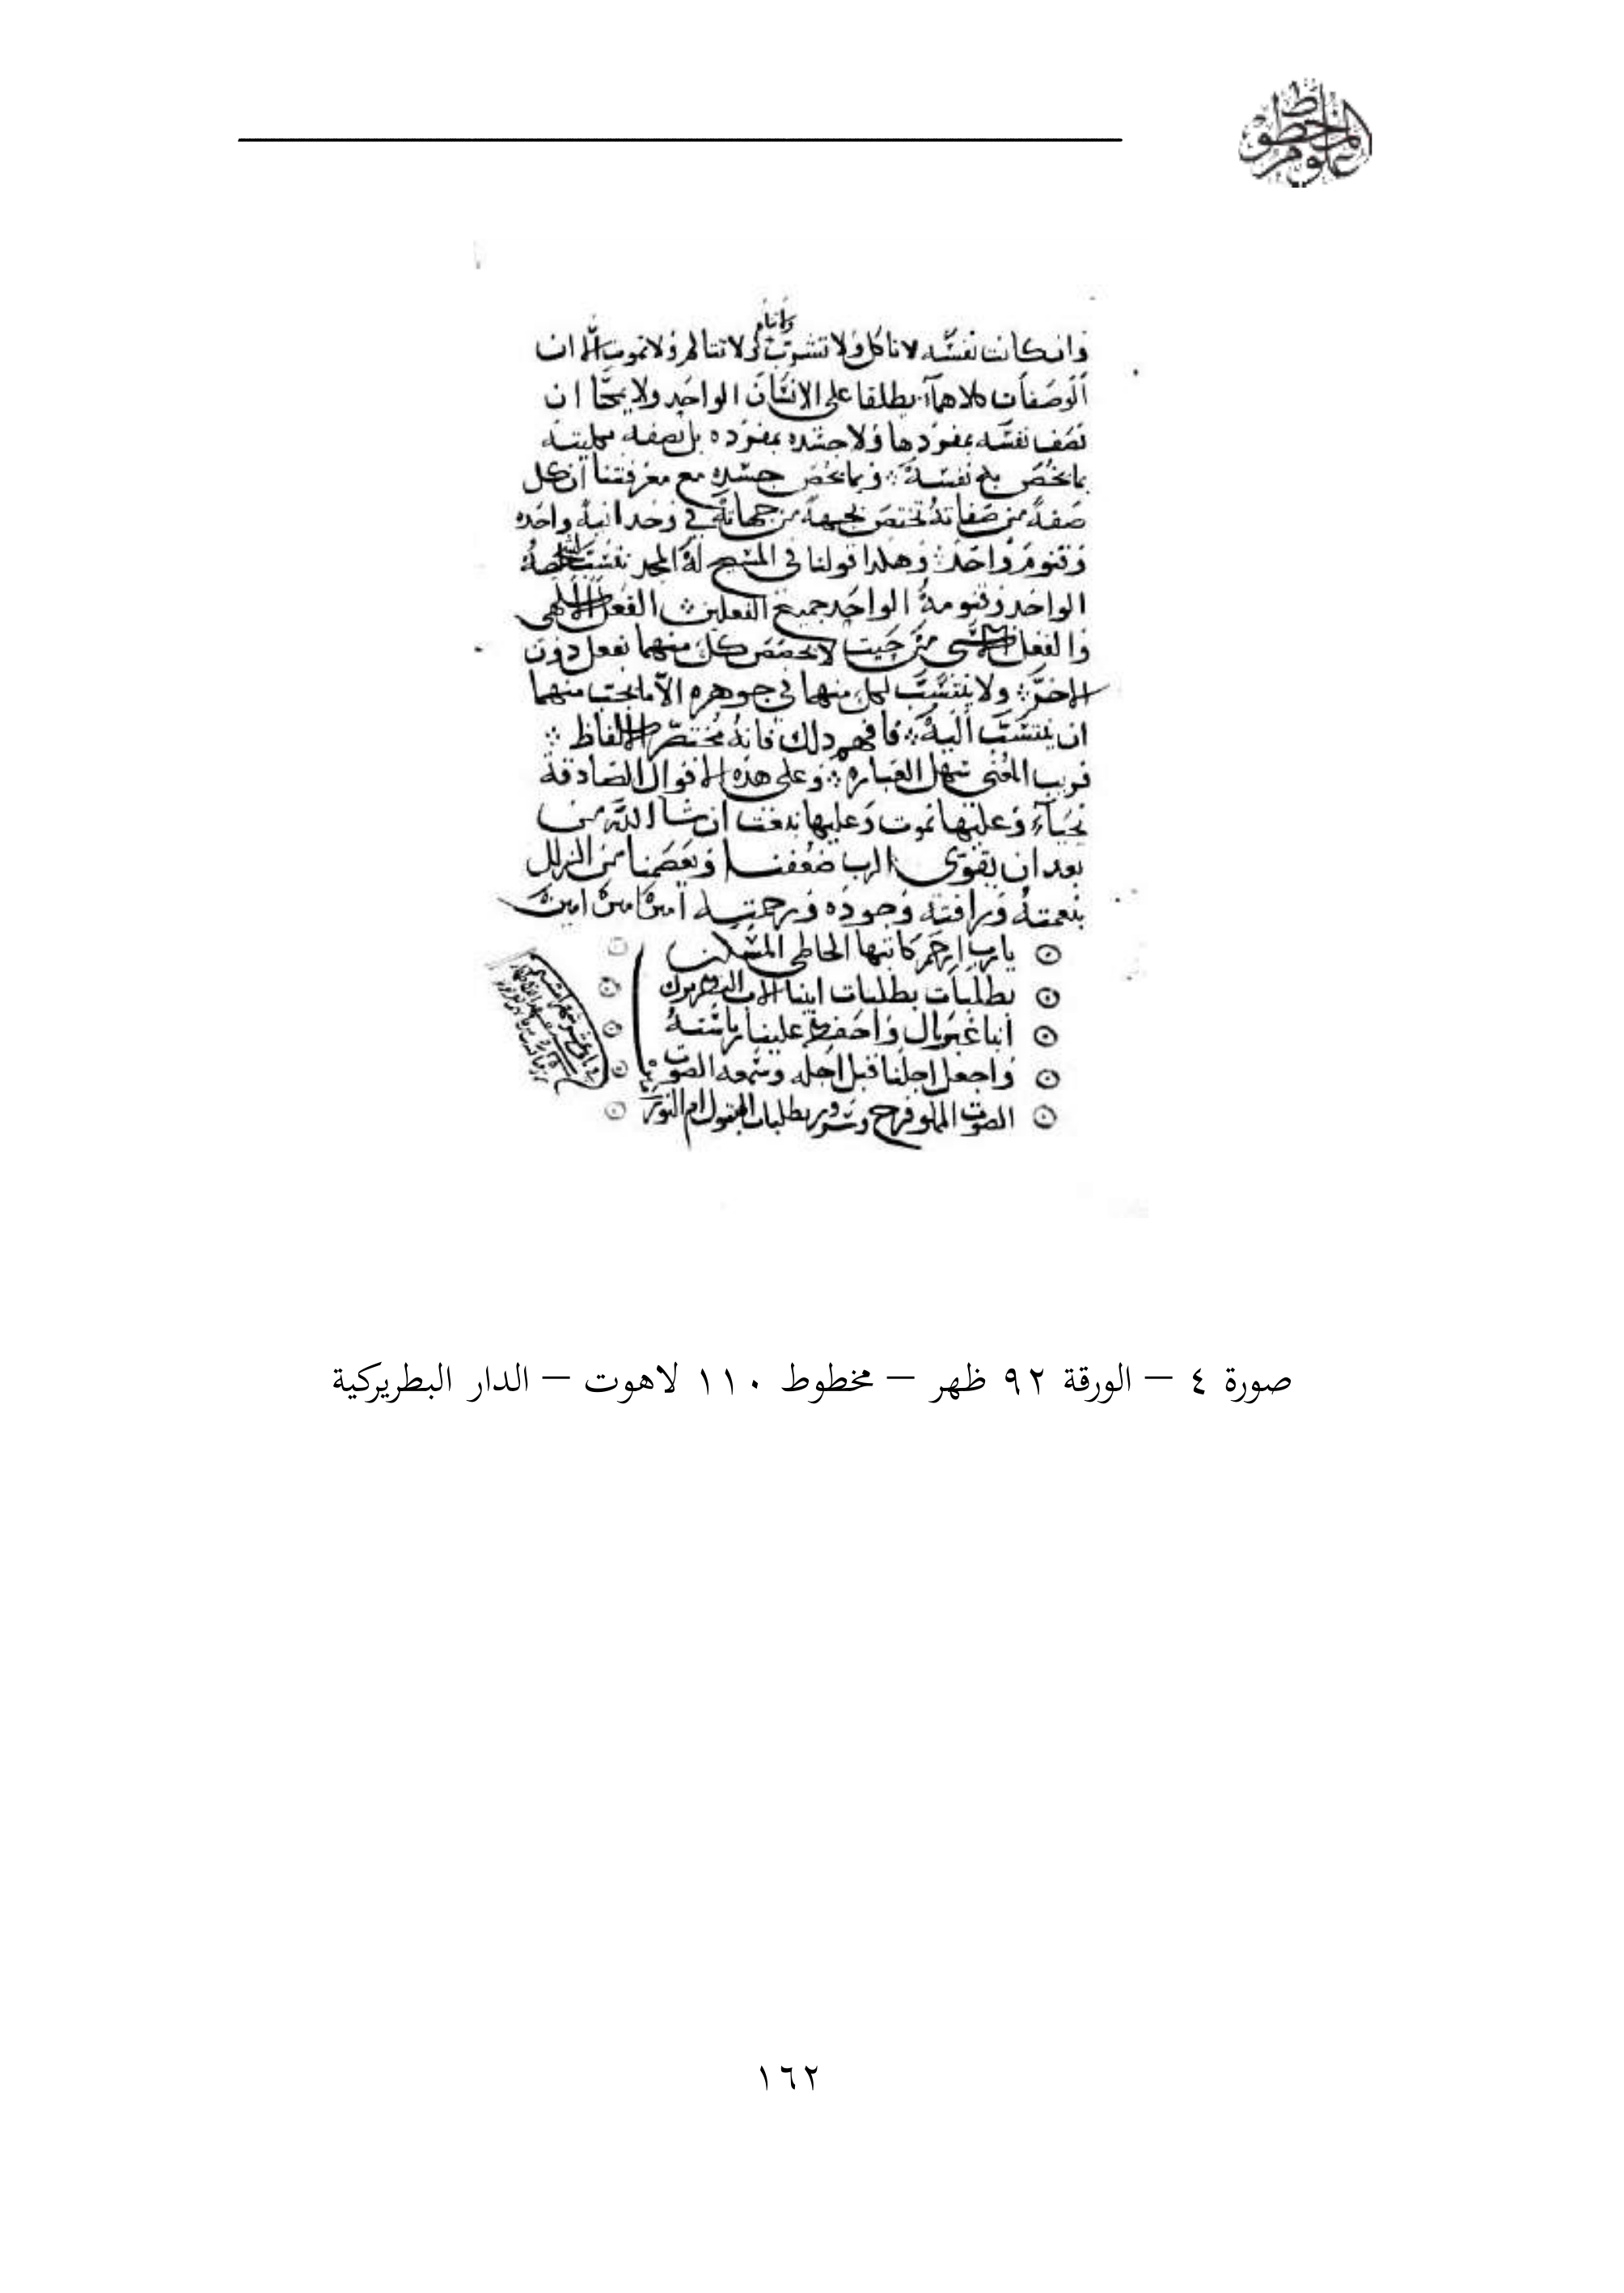 علوم المخطوط
وان كانت نفسه لا تاكل ولا تشرب ولا تنام ولا تتالم ولا تموت الا ان
الوصفات كلاهما يطلقا على الانسان الواحد ولا يحتا ان
تصف نفسه بمفردها ولا جسده بمفرده بل تصفه بكليته
بما يخص نفسه وبما يخص جسده مع معرفتنا ان كل
صفة من صفاته تختص بجهة من جهاته في وحدانية واحده
وقنوم واحد وهكذا قولنا في المسيح له المجد ننسب
الواحد وقنومة الواحد جميع الفعلين الفعل الالهى
والفعل من حيت لا تخصص كل منهما بفعل دون
الاخر ولا ينتسب لكل منهما في جوهره الا ما يجب منهما
ان ينتسب اليه فافهم دلك فانه مختصر الالفاظ
قريب المعنى سهل العباره وعلى هذه الاقوال الصادقة
نحياء وعليها نموت وعليها نبعت ان شا الله من
بعد ان يقوى الرب ضعفنا ويعصمنا من الزلل
بنعمته ورافته وجوده ورحمته امين امين امين
يارب ارحم كاتبها الخاطى المسكين
بطلبات بطلبات ابينا الاب البطريرك
انبا غبريال واحفظ علينا رياسته
واجعل اجلنا قبل اجله وسمعه الصوت
الصوت المملو فرح وسرور بطلبات البتول ام النور
صورة ٤ – الورقة ٩٢ ظهر – مخطوط ١١٠ لاهوت – الدار البطريركية
١٦٢